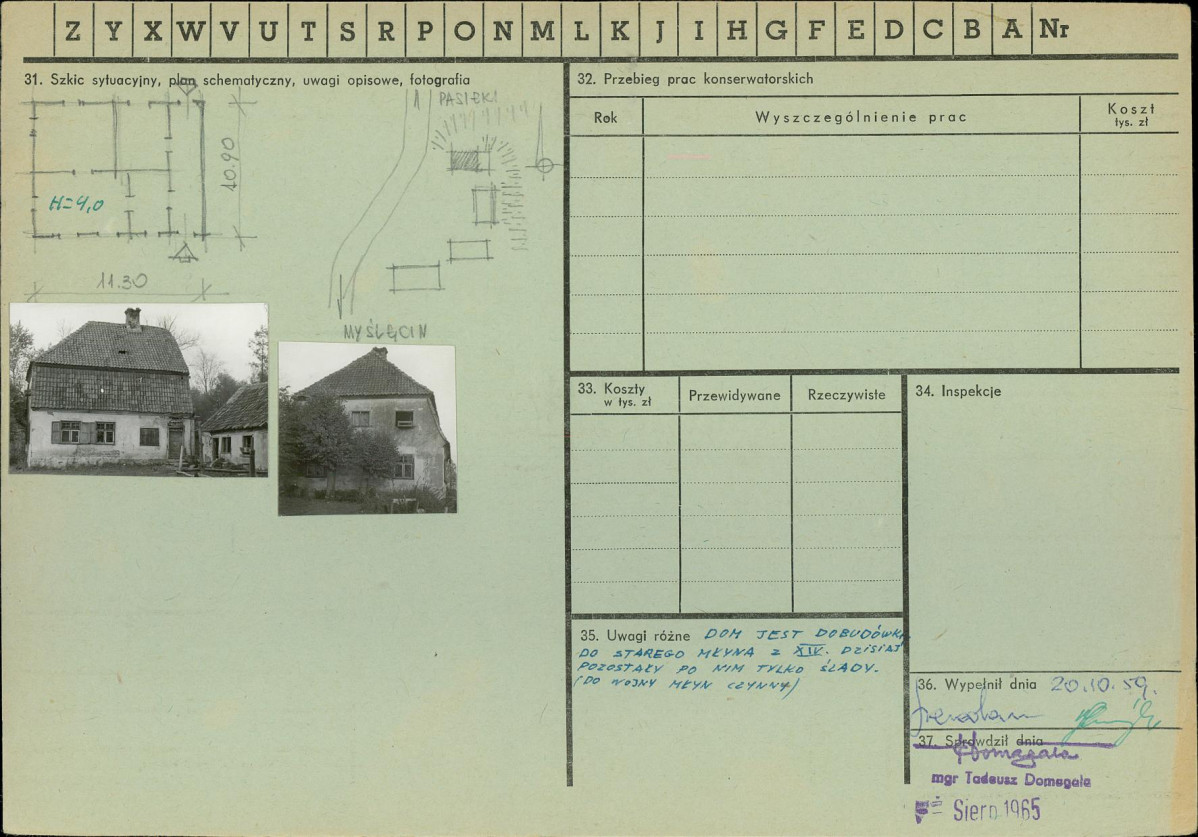 Z Y X W V U T S R P O N M L K J I H G F E D C B A Nr
31. Szkic sytuacyjny, plan schematyczny, uwagi opisowe, fotografia
PASIEKI
10.90
H=4,0
11.30
MYŚLĘCIN
32. Przebieg prac konserwatorskich
Rok
Wyszczególnienie prac
Koszt
tys. zł
33. Koszty
w tys. zł
Przewidywane
Rzeczywiste
34. Inspekcje
35. Uwagi różne DOM JEST DOBUDÓWKĄ
DO STAREGO MŁYNA Z XIV. DZISIAJ
POZOSTAŁY PO NIM TYLKO ŚLADY.
(DO WOJNY MŁYN CZYNNY)
36. Wypełnił dnia 20.10.59.
37. Sprawdził dnia
TDomagała
mgr Tadeusz Domagała
Sierp 1965